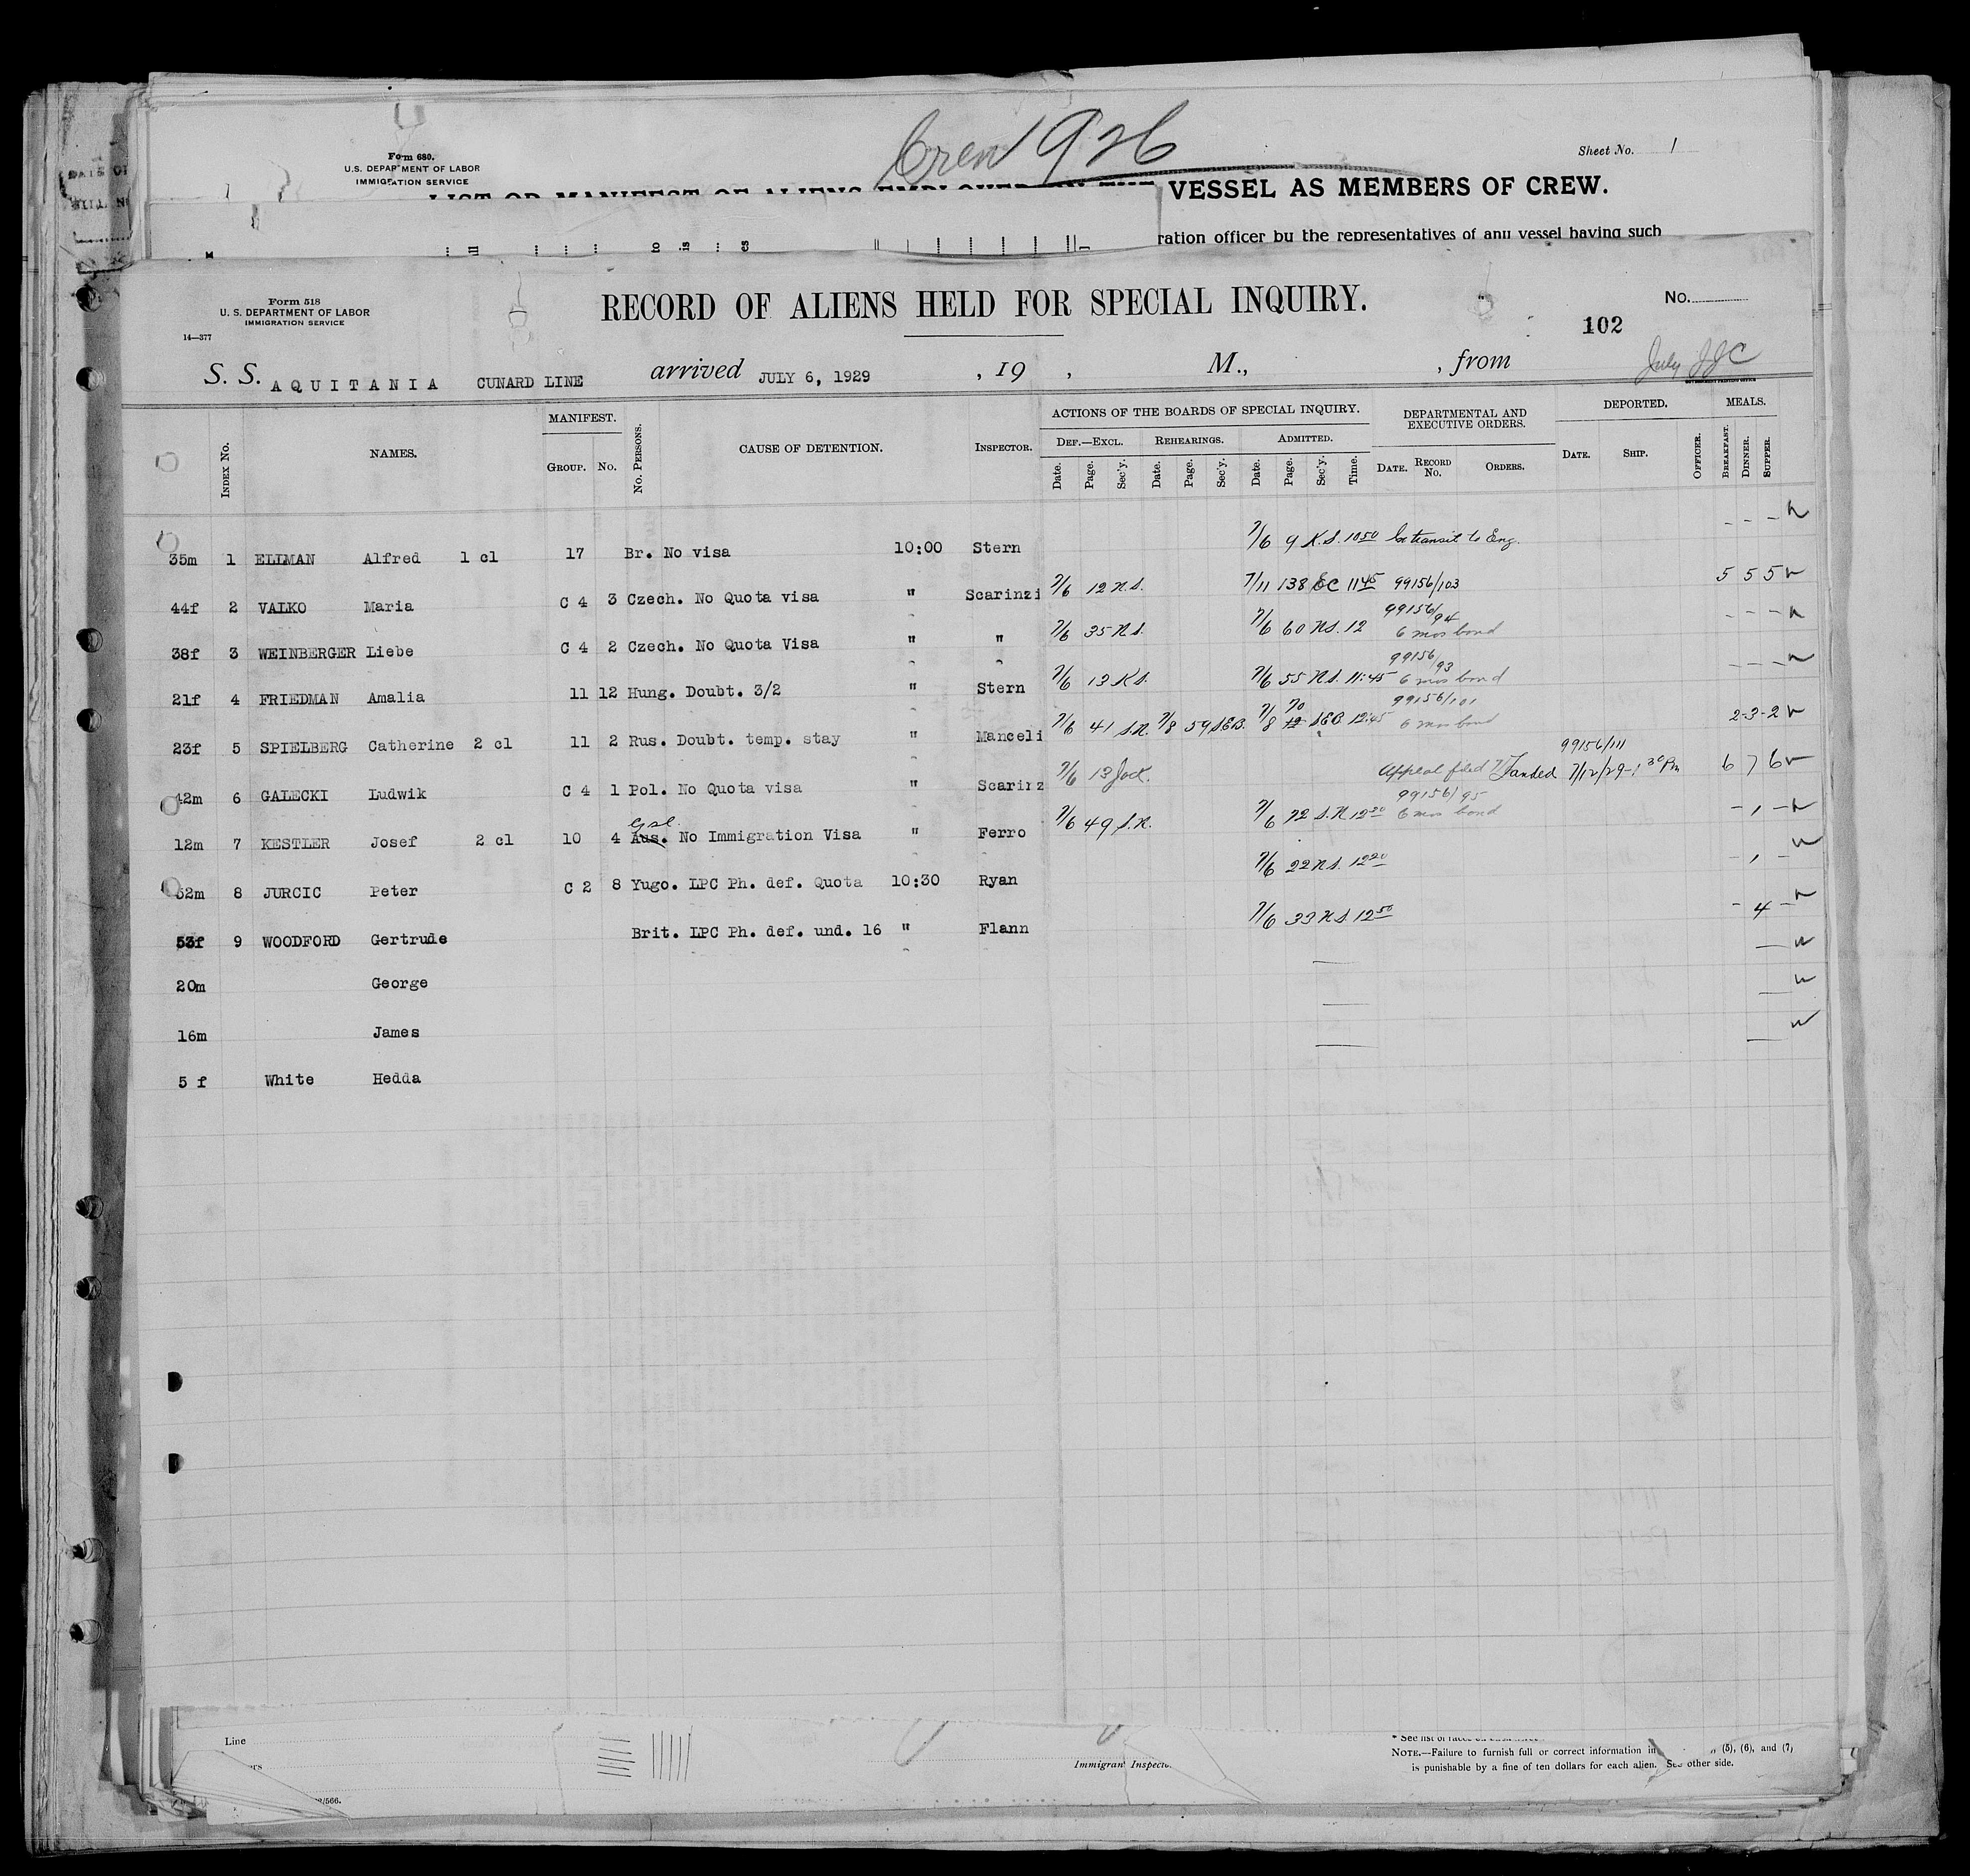 Crew 926
Form 680.
U.S. DEPARTMENT OF LABOR
IMMIGRATION SERVICE
Sheet No. 1
LIST OR MANIFEST OF ALIENS EMPLOYED ON THE VESSEL AS MEMBERS OF CREW.
ration officer by the representatives of any vessel having such
Form 518
U. S. DEPARTMENT OF LABOR
IMMIGRATION SERVICE
14—377
RECORD OF ALIENS HELD FOR SPECIAL INQUIRY.
No.
102
S. S. AQUITANIA CUNARD LINE arrived JULY 6, 1929 , 19 , M., , from
July JJC
GOVERNMENT PRINTING OFFICE
MANIFEST. ACTIONS OF THE BOARDS OF SPECIAL INQUIRY. DEPARTMENTAL AND EXECUTIVE ORDERS. DEPORTED. MEALS.
DEF.—EXCL. REHEARINGS. ADMITTED.
INDEX NO. NAMES. GROUP. NO. NO. PERSONS. CAUSE OF DETENTION. INSPECTOR. Date. Page. Sec'y. Date. Page. Sec'y. Date. Page. Sec'y. Time. DATE. RECORD NO. ORDERS. DATE. SHIP. OFFICER. BREAKFAST. DINNER. SUPPER.
35m 1 ELLMAN Alfred 1 cl 17 Br. No visa 10:00 Stern 7/6 9 K.S. 10 50 In transit to Eng. - - -
44f 2 VALKO Maria C 4 3 Czech. No Quota visa " Scarinzi 7/6 12 N.S. 7/11 138 EC 11 45 99156/103 5 5 5
38f 3 WEINBERGER Liebe C 4 2 Czech. No Quota Visa " " 7/6 35 N.S. 7/6 60 N.S. 12 99156/94 6 mos bond - - -
21f 4 FRIEDMAN Amalia 11 12 Hung. Doubt. 3/2 " Stern 7/6 13 K.S. 7/6 55 N.S. 11:45 99156/93 6 mos bond - - -
23f 5 SPIELBERG Catherine 2 cl 11 2 Rus. Doubt. temp. stay " Manceli 7/6 41 S.N. 7/8 59 S.E.B. 7/8 70 S.E.B. 12:45 99156/101 6 mos bond 2-3-2
42m 6 GALECKI Ludwik C 4 1 Pol. No Quota visa " Scarinz 7/6 13 Jack. Appeal filed 99156/111 Landed 7/12/29-1 30 Pm 6 7 6
12m 7 KESTLER Josef 2 cl 10 4 Aus. No Immigration Visa " Ferro 7/6 49 S.N. 7/6 72 S.N. 12 20 99156/95 6 mos bond - 1 -
52m 8 JURCIC Peter C 2 8 Yugo. LPC Ph. def. Quota 10:30 Ryan 7/6 22 N.S. 12 20 - 1 -
53f 9 WOODFORD Gertrude Brit. LPC Ph. def. und. 16 " Flann 7/6 33 N.S. 12 50 - 4 -
20m George
16m James
5 f White Hedda
Line
Immigrant Inspector
NOTE.—Failure to furnish full or correct information in (5), (6), and (7)
is punishable by a fine of ten dollars for each alien. See other side.